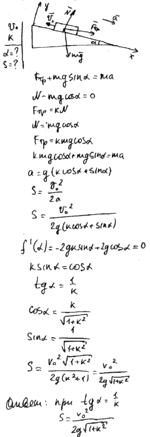 v₀
k
α = ?
S = ?
y
N
v
Fтр
a
mg
α
x
Fтр + mg sinα = ma
N - mg cosα = 0
N = mg cosα
Fтр = kN
Fтр = kmg cosα
kmg cosα + mg sinα = ma
a = g(k cosα + sinα)
S = v₀² / 2a
S = v₀² / 2g(k cosα + sinα)
f'(α) = -2gk sinα + 2g cosα = 0
k sinα = cosα
tg α = 1/k
cosα = k / √(1+k²)
sinα = 1 / √(1+k²)
S = v₀² √(1+k²) / 2g(k²+1) = v₀² / 2g√(1+k²)
Ответ: при tg α = 1/k
S = v₀² / 2g√(1+k²)